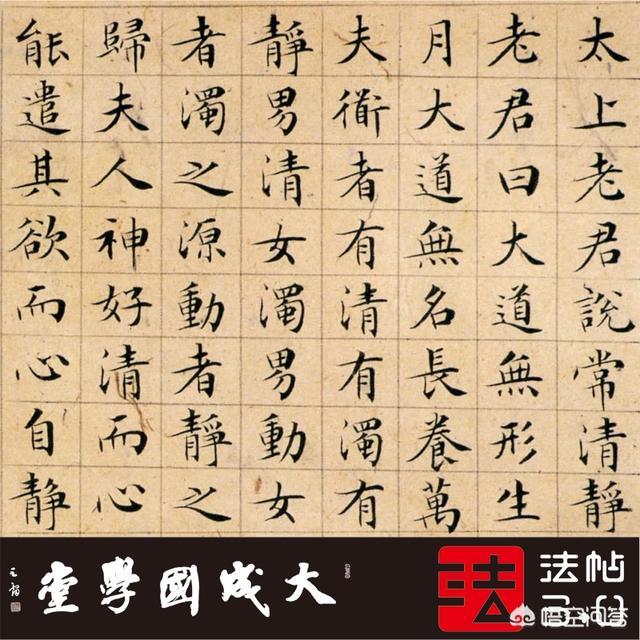 太上老君說常清靜
老君曰大道無形生
月大道無名長養萬
夫衜者有清有濁有
靜男清女濁男動女
者濁之源動者靜之
歸夫人神好清而心
能遣其欲而心自靜
大成國學堂
法
法帖
悟空问答